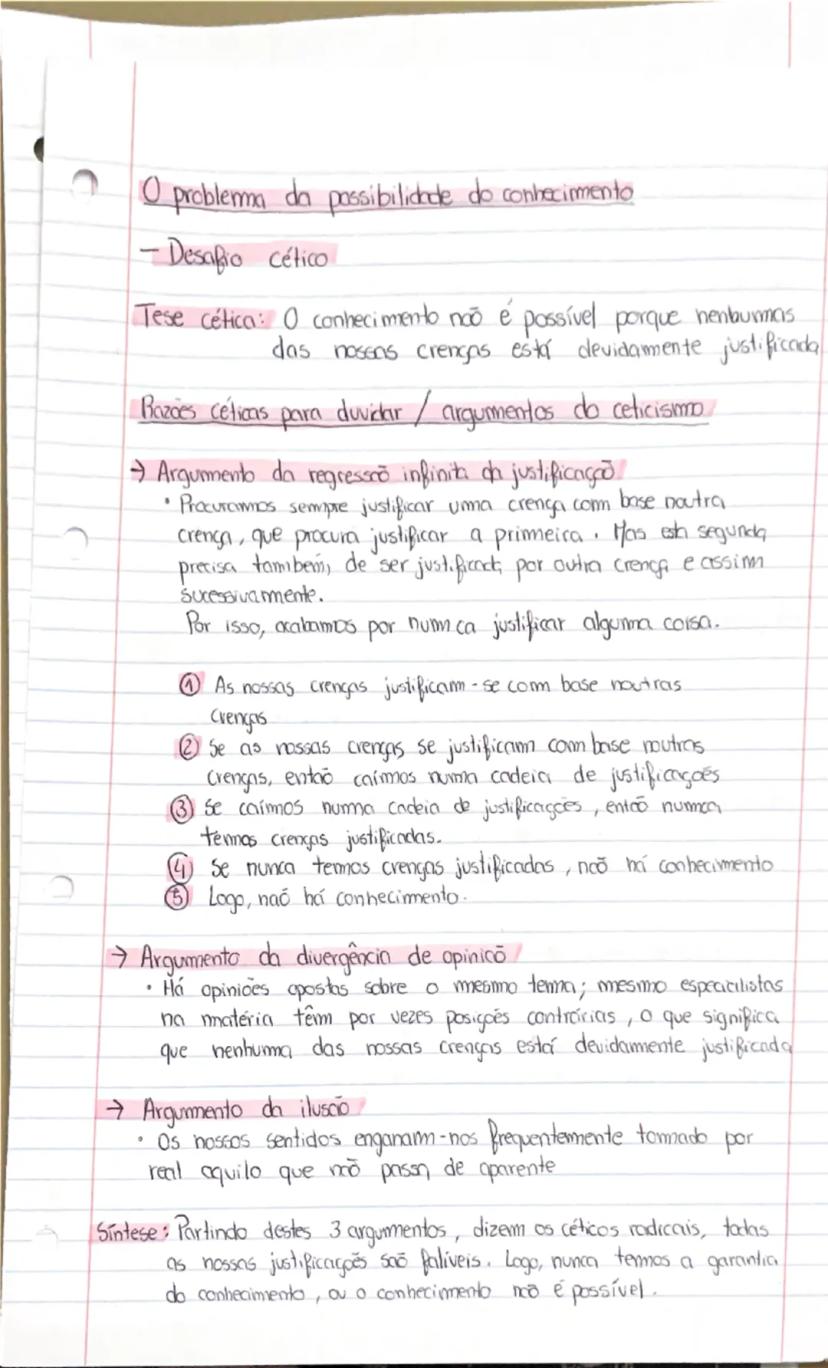 O problema da possibilidade do conhecimento
– Desafio cético
Tese cética: O conhecimento não é possível porque nenhumas
das nossas crenças está devidamente justificada
Razões céticas para duvidar / argumentos do ceticismo
→ Argumento da regressão infinita da justificação
• Procuramos sempre justificar uma crença com base noutra
crença, que procura justificar a primeira. Mas esta segunda
precisa também, de ser justificada, por outra crença e assim
sucessivamente.
Por isso, acabamos por nunca justificar alguma coisa.
① As nossas crenças justificam-se com base noutras
crenças
② Se as nossas crenças se justificam com base noutras
crenças, então caímos numa cadeia de justificações
③ Se caímos numa cadeia de justificações, então nunca
temos crenças justificadas.
④ Se nunca temos crenças justificadas, não há conhecimento
⑤ Logo, naõ há conhecimento.
→ Argumento da divergência de opinião
• Há opiniões opostas sobre o mesmo tema; mesmo especialistas
na matéria têm por vezes posições contrárias, o que significa
que nenhuma das nossas crenças está devidamente justificada
→ Argumento da ilusão
• Os nossos sentidos enganam-nos frequentemente tomado por
real aquilo que não passa de aparente
Síntese: Partindo destes 3 argumentos, dizem os céticos radicais, todas
as nossas justificações são falíveis. Logo, nunca temos a garantia
do conhecimento, ou o conhecimento não é possível.